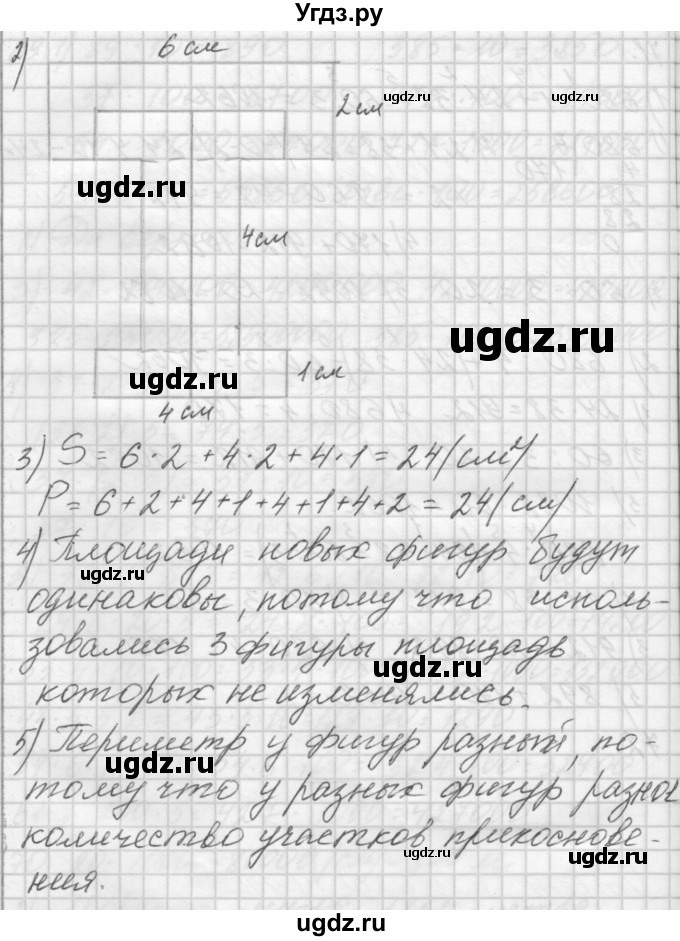 Угдз.ру
2) 6 см
ugdz.ru
2 см
ugdz.ru
ugdz.ru
4 см
ugdz.ru
ugdz.ru
1 см
4 см
3) S = 6 · 2 + 4 · 2 + 4 · 1 = 24 (см²)
P = 6 + 2 + 4 + 1 + 4 + 1 + 4 + 2 = 24 (см)
4) Площади новых фигур будут
ugdz.ru
одинаковы, потому что исполь-
зовались 3 фигуры площадь
ugdz.ru
которых не изменялись.
5) Периметр у фигур разный, по-
ugdz.ru
тому что у разных фигур разное
количество участков прикоснове-
ugdz.ru
ugdz.ru
ния.
ugdz.ru